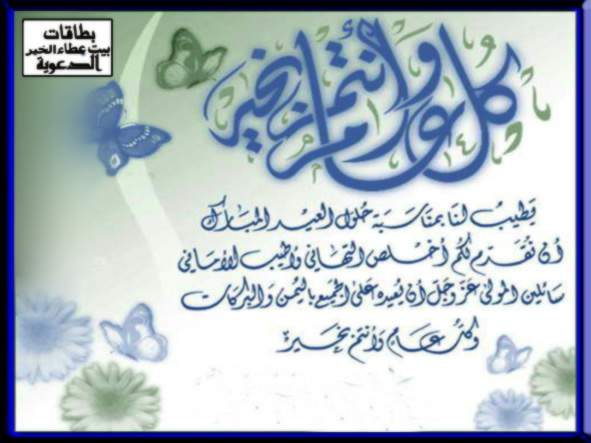 بطاقات
بيت عطاء الخير
الدعوية
كل عام وأنتم بخير
يطيب لنا بمناسبة حلول العيد المبارك
أن نقدم لكم أخلص التهاني وأطيب الأماني
سائلين المولى عز وجل أن يعيده على الجميع باليمن والبركات
وكل عام وأنتم بخير